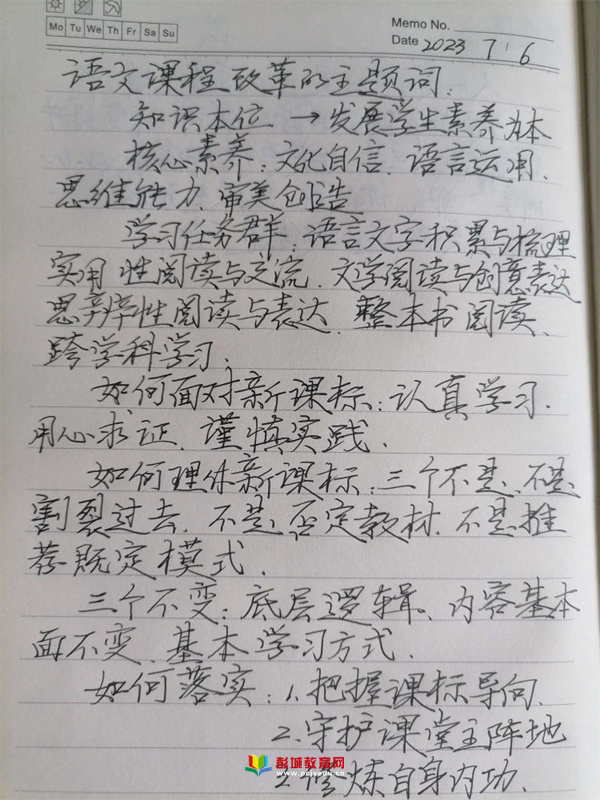 Memo No.
Mo Tu We Th Fr Sa Su
Date 2023 7 6
语文课程改革的主题词:
知识本位 → 发展学生素养为本
核心素养:文化自信、语言运用、
思维能力、审美创造
学习任务群:语言文字积累与梳理
实用性阅读与交流、文学阅读与创意表达
思辨性阅读与表达、整本书阅读、
跨学科学习.
如何面对新课标:认真学习.
用心求证、谨慎实践.
如何理体新课标:三个不是、不是
割裂过去、不是否定教材、不是推
荐既定模式.
三个不变:底层逻辑、内容基本
面不变、基本学习方式.
如何落实:1.把握课标导向.
2.守护课堂主阵地
2.修炼自身内功.
彭城教育网
www.pcjyedu.cn